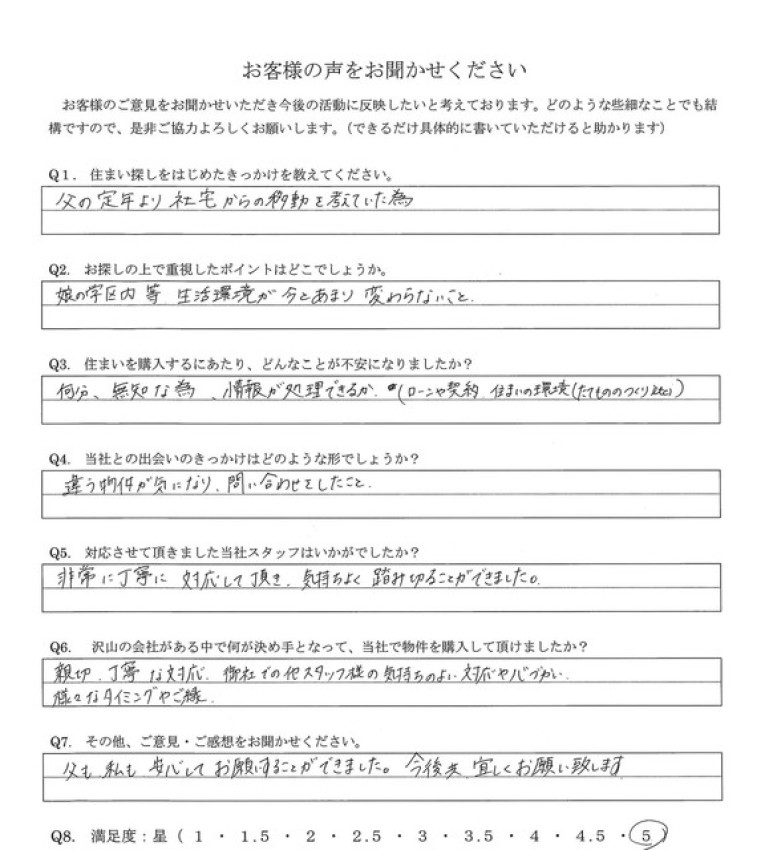 お客様の声をお聞かせください
お客様のご意見をお聞かせいただき今後の活動に反映したいと考えております。どのような些細なことでも結
構ですので、是非ご協力よろしくお願いします。（できるだけ具体的に書いていただけると助かります）
Q1. 住まい探しをはじめたきっかけを教えてください。
父の定年より社宅からの移動を考えていた為
Q2. お探しの上で重視したポイントはどこでしょうか。
娘の学区内等 生活環境が今とあまり変わらないこと.
Q3. 住まいを購入するにあたり、どんなことが不安になりましたか？
何分、無知な為、情報が処理できるか. (ローンや契約. 住まいの環境(たてもののつくりetc))
Q4. 当社との出会いのきっかけはどのような形でしょうか？
違う物件が気になり、問い合わせをしたこと.
Q5. 対応させて頂きました当社スタッフはいかがでしたか？
非常に丁寧に対応して頂き、気持ちよく踏み切ることができました。
Q6. 沢山の会社がある中で何が決め手となって、当社で物件を購入して頂けましたか？
親切、丁寧な対応. 御社での他スタッフ様の気持ちのよい対応や心づかい.
様々なタイミングやご縁.
Q7. その他、ご意見・ご感想をお聞かせください。
父も私も安心してお願いすることができました。今後共、宜しくお願い致します
Q8. 満足度：星（ 1 ・ 1.5 ・ 2 ・ 2.5 ・ 3 ・ 3.5 ・ 4 ・ 4.5 ・ 5 ）